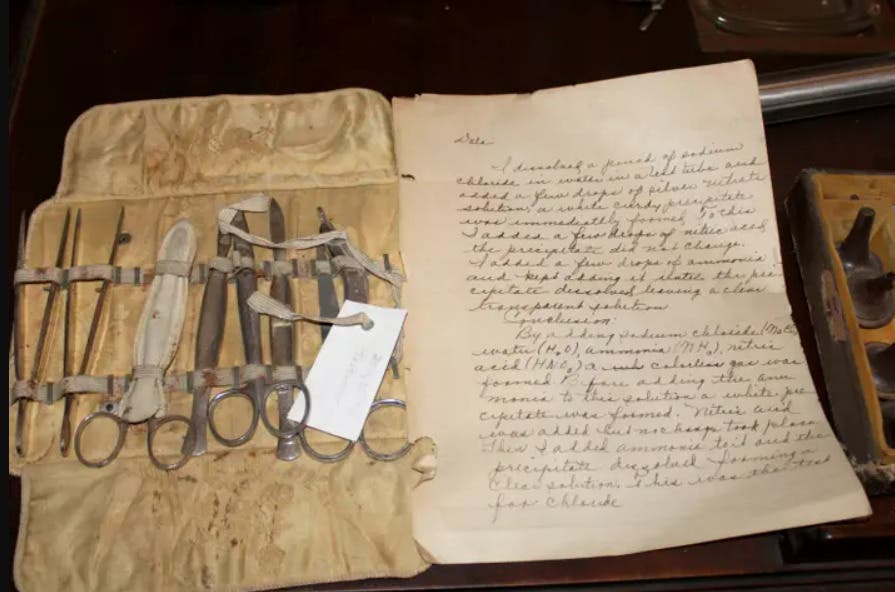 Data
I dissolved a pinch of sodium
chloride in water in a test tube and
added a few drops of silver nitrate
solution, a white curdy precipitate
was immediatly formed, To this
I added a few drops of nitric acid,
the precipitate did not change.
I added a few drops of ammonia
and kept adding it until the pre
cipitate dissolved leaving a clear
transparent solution
Conclusion:
By adding sodium chloride
water (H2O), ammonia (NH3), nitric
acid (HNO3) a colorless gas was
formed Before adding the am
monia to this solution a white pre
cipitate was formed. Nitric acid
was added but no change took place
Then I added ammonia to it and the
precipitate dissolved forming a
clear solution. This was the test
for chloride